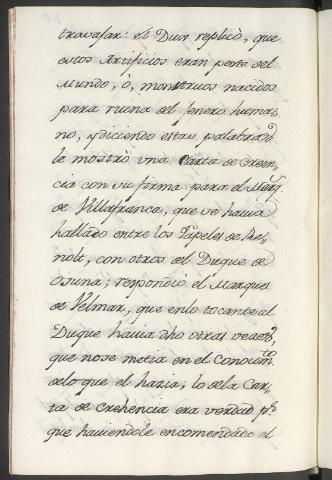 travasar: el Dux replicò, que
estos Artificios eran peste del
Mundo, ò, monstruos nacidos
para ruina del genero huma-
no, y diciendo estas palabras
le mostrò vna Carta de Creen-
cia con su firma para el Marqs
de Villafranca, que se hauia
hallado entre los Papeles de
nolt, con otros del Duque de
Osuna; respondiò el Marques
de Velmar, que en lo tocante al
Duque hauia dho otras vezes,
que no se metia en el Conocimto
de lo que el hazia; lo de la Car-
ta de Crehencia era verdad pr
que hauiendole encomendado el